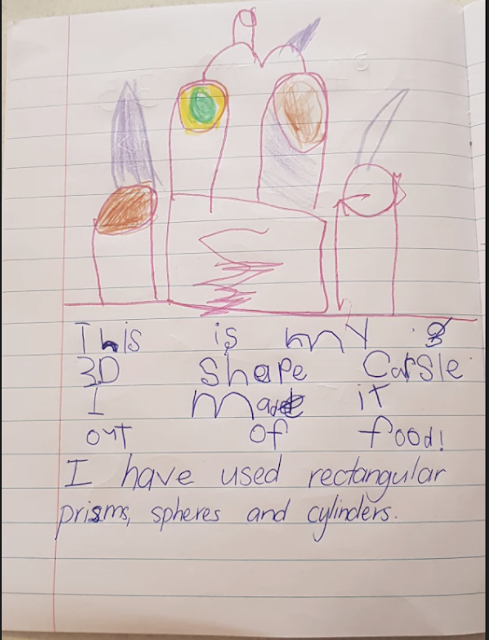 This is my
3D Shape Carsle
I made it
out of food!
I have used rectangular
prisms, spheres and cylinders.